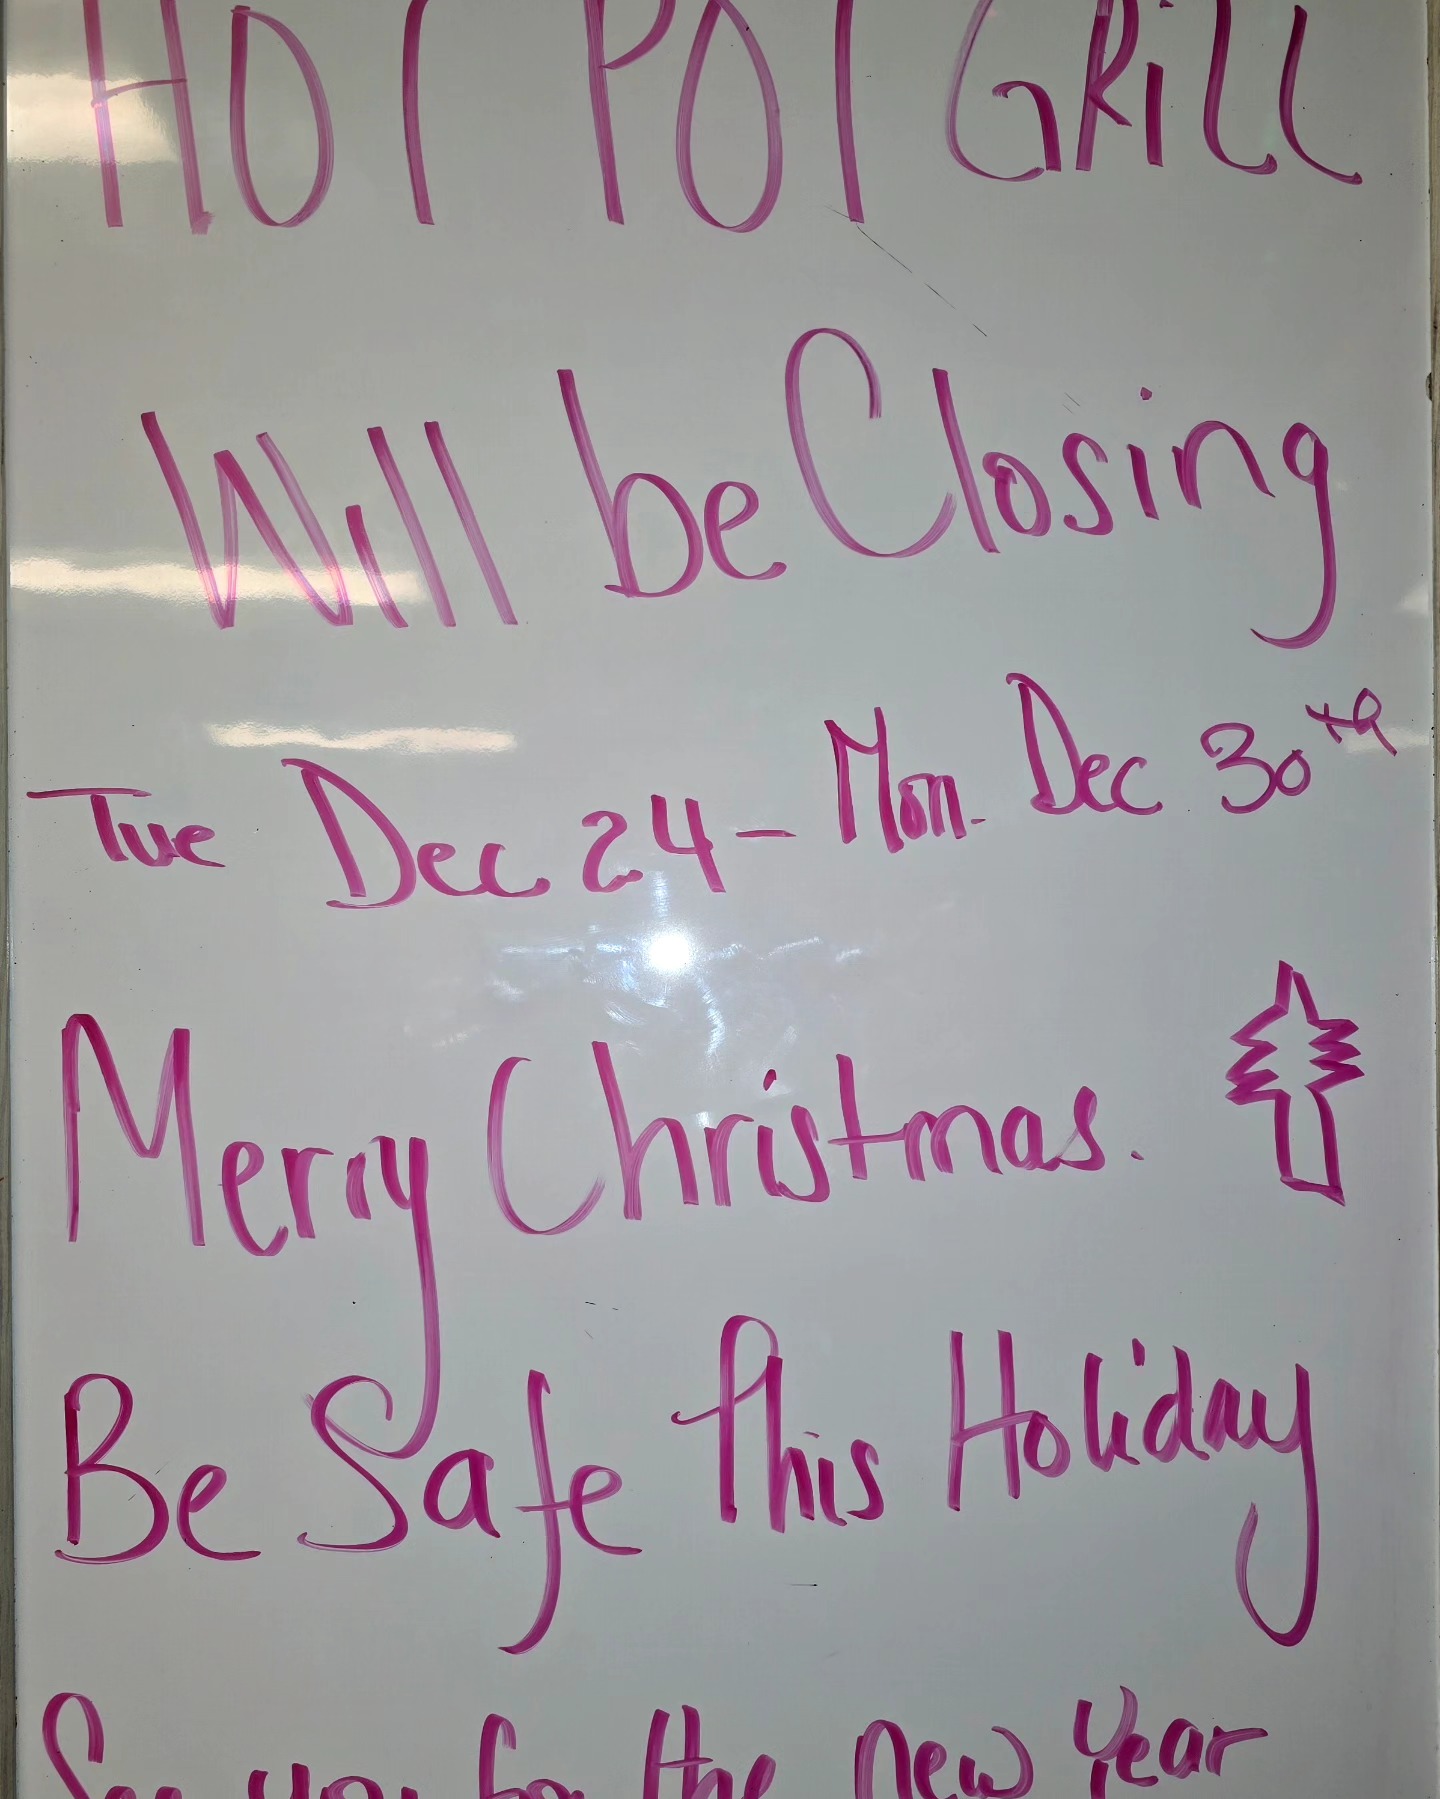 HOT POT GRiLL
Will be Closing
Tue Dec 24 - Mon. Dec 30th
Merry Christmas.
Be Safe this Holiday
See you for the new year